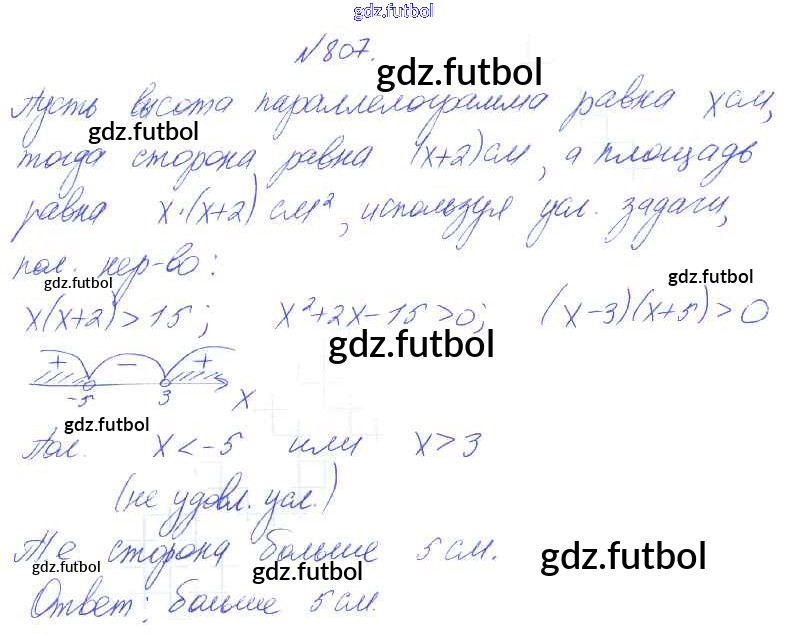 gdz.futbol
№807.
gdz.futbol
Пусть высота параллелограмма равна x см,
gdz.futbol
тогда сторона равна (x+2) см, а площадь
равна x·(x+2) см², используя усл. задачи,
пол. нер-во:
gdz.futbol
gdz.futbol
x(x+2)>15; x²+2x-15>0; (x-3)(x+5)>0
gdz.futbol
+ - +
-5 3 x
gdz.futbol
Пол. x<-5 или x>3
(не удовл. усл.)
Т.е сторона больше 5 см.
gdz.futbol
gdz.futbol
gdz.futbol
Ответ: больше 5 см.